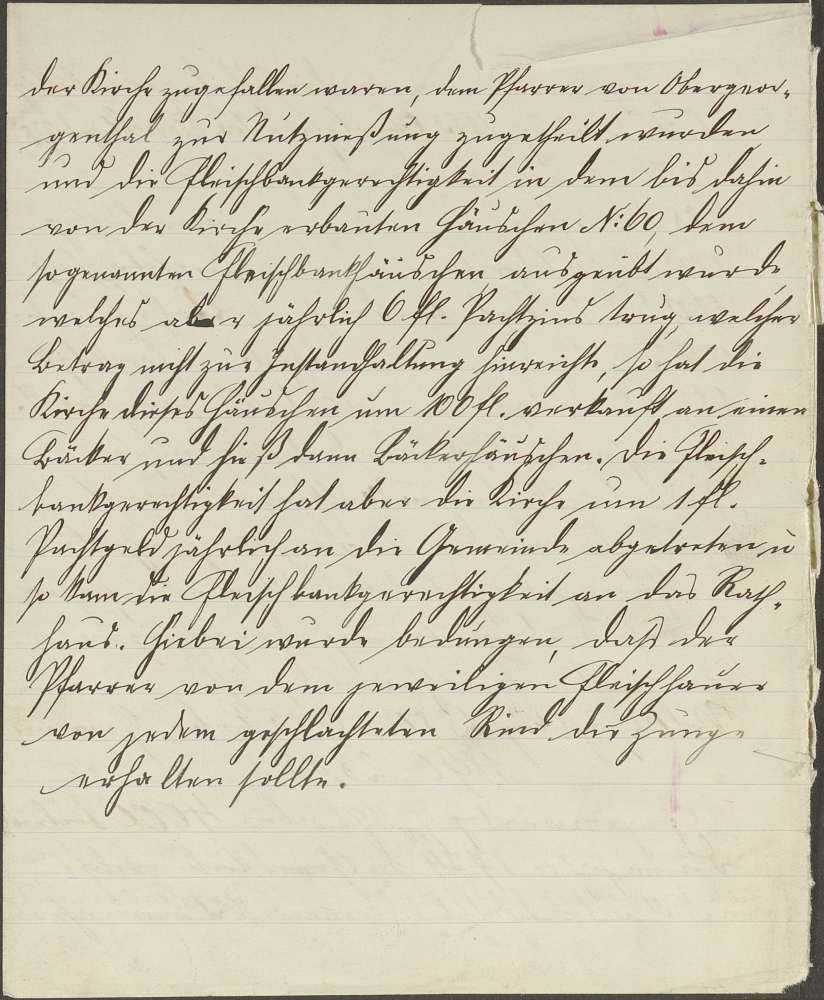 der Kirche zugefallen waren, dem Pfarrer von Obergeor-
genthal zur Nutznießung zugetheilt wurden
und die Fleischbankgerechtigkeit in dem bis dahin
von der Kirche erbauten Häuschen N: 60, dem
sogenannten Fleischbankhäuschen ausgeübt wurde,
welches aber jährlich 6 fl. Pachtzins trug, welcher
Betrag nicht zur Instandhaltung hinreichte, so hat die
Kirche dieses Häuschen um 100 fl. verkauft an einen
Bäcker und hieß dann Bäckerhäuschen. Die Fleisch-
bankgerechtigkeit hat aber die Kirche um 1 fl.
Pachtgeld jährlich an die Gemeinde abgetreten u
so kam die Fleischbankgerechtigkeit an das Rath-
haus. Hiebei wurde bedungen, daß der
Pfarrer von dem jeweiligen Fleischhauer
von jedem geschlachteten Rind die Zunge
erhalten sollte.